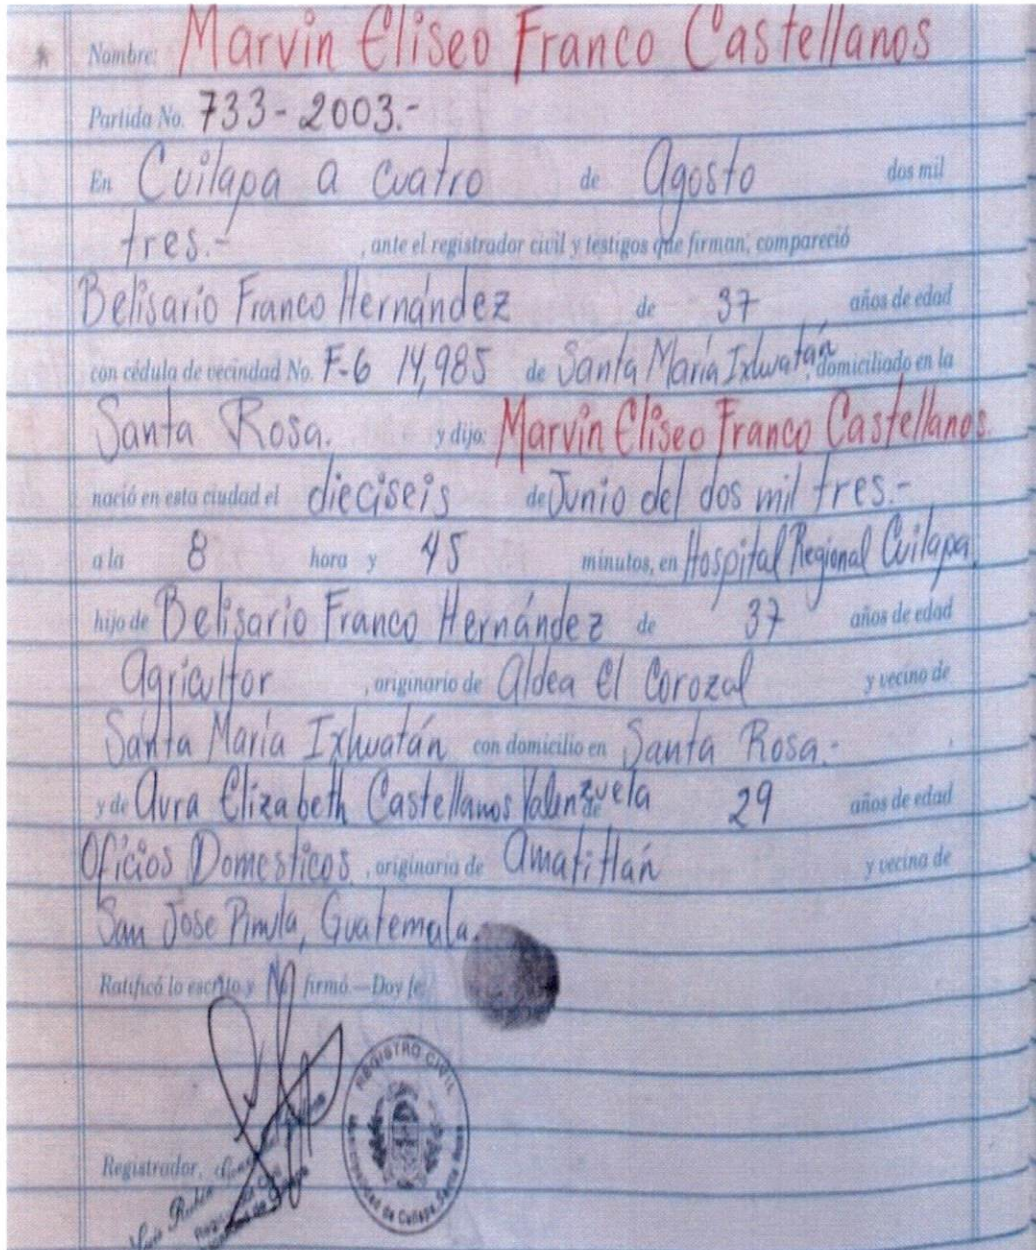 Nombre: Marvin Eliseo Franco Castellanos
Partida No. 733-2003.-
En Cuilapa a cuatro de Agosto dos mil
tres.- , ante el registrador civil y testigos que firman, compareció
Belisario Franco Hernández de 37 años de edad
con cédula de vecindad No. F-6 14,985 de Santa María Ixhuatán domiciliado en la
Santa Rosa. y dijo: Marvin Eliseo Franco Castellanos.
nació en esta ciudad el dieciseis de Junio del dos mil tres.-
a la 8 hora y 45 minutos, en Hospital Regional Cuilapa.
hijo de Belisario Franco Hernández de 37 años de edad
Agricultor , originario de Aldea El Corozal y vecino de
Santa María Ixhuatán con domicilio en Santa Rosa.-
y de Aura Elizabeth Castellanos Valenzuela de 29 años de edad
Oficios Domesticos , originaria de Amatitlán y vecina de
San Jose Pinula, Guatemala.
Ratificó lo escrito y No firmó—Doy fe.
REGISTRO CIVIL
Municipalidad de Cuilapa, Santa Rosa
Registrador,
Luis Rubén
Registrador Civil